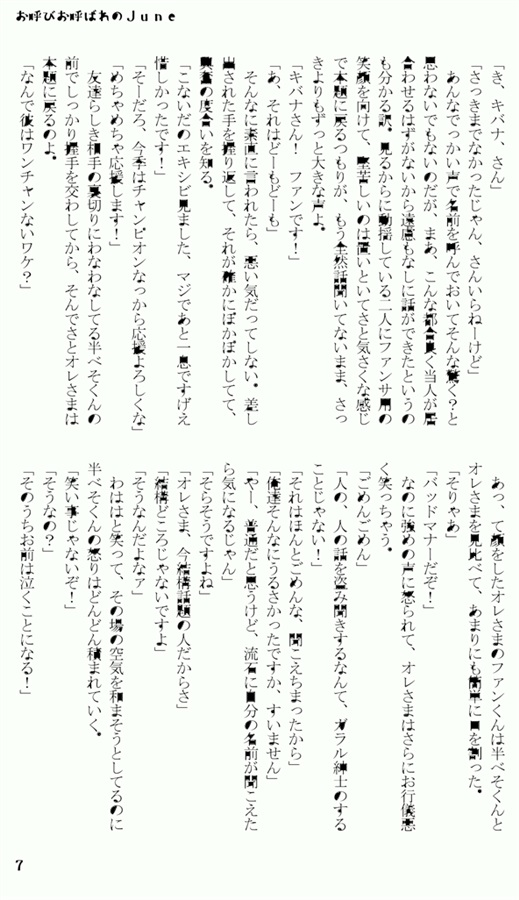 お呼びお呼ばれのJune
「き、キバナ、さん」
「さっきまでなかったじゃん、さんいらねーけど」
あんなでっかい声で名前を呼んでおいてそんな驚く？と
思わないでもないのだが、まあ、こんな都合良く当人が居
合わせるはずがないから遠慮もなしに話ができたというの
も分かる訳。見るからに動揺している二人にファンサ用の
笑顔を向けて、堅苦しいのは置いといてさと気さくな感じ
で本題に戻るつもりが、もう全然話聞いてないまま、さっ
きよりもずっと大きな声よ。
「キバナさん！　ファンです！」
「あ、それはどーもどーも」
そんなに素直に言われたら、悪い気だってしない。差し
出された手を握り返して、それが確かにぽかぽかしてて、
興奮の度合いを知る。
「こないだのエキシビ見ました、マジであと一息ですげえ
惜しかったです！」
「そーだろ、今季はチャンピオンなっから応援よろしくな」
「めちゃめちゃ応援します！」
友達らしき相手の裏切りにわなわなしてる半べそくんの
前でしっかり握手を交わしてから、そんでさとオレさまは
本題に戻るのよ。
「なんで彼はワンチャンないワケ？」
あっ、て顔をしたオレさまのファンくんは半べそくんと
オレさまを見比べて、あまりにも簡単に口を割った。
「そりゃあ」
「バッドマナーだぞ！」
なのに強めの声に怒られて、オレさまはさらにお行儀悪
く笑っちゃう。
「ごめんごめん」
「人の、人の話を盗み聞きするなんて、ガラル紳士のする
ことじゃない！」
「それはほんとごめんな、聞こえちまったから」
「俺達そんなにうるさかったですか、すいません」
「やー、普通だと思うけど、流石に自分の名前が聞こえた
ら気になるじゃん」
「そらそうですよね」
「オレさま、今結構話題の人だからさ」
「結構どころじゃないですよ」
「そうなんだよなァ」
わははと笑って、その場の空気を和まそうとしてるのに
半べそくんの怒りはどんどん積まれていく。
「笑い事じゃないぞ！」
「そうなの？」
「そのうちお前は泣くことになる！」
7